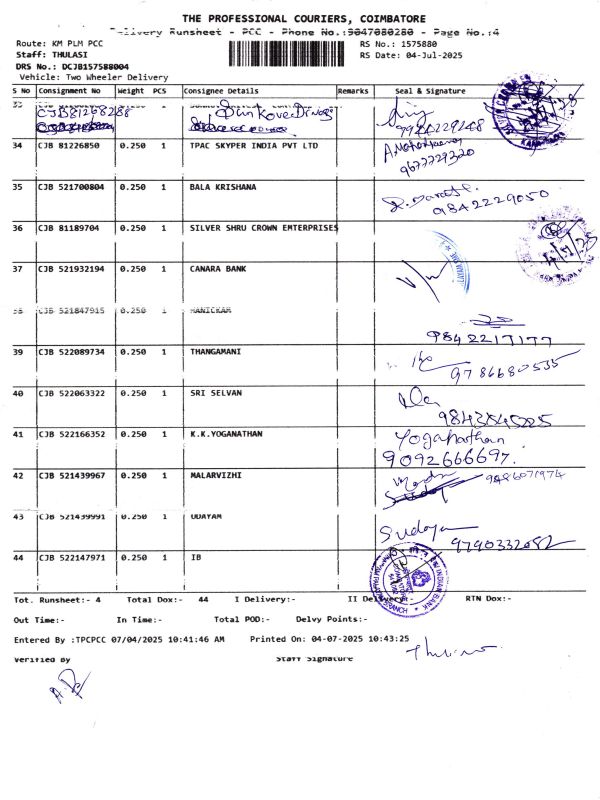 THE PROFESSIONAL COURIERS, COIMBATORE
Delivery Runsheet - PCC - Phone No.:9047080280 - Page No.:4
Route: KM PLM PCC
RS No.: 1575880
Staff: THULASI
RS Date: 04-Jul-2025
DRS No.: DCJB157588004
Vehicle: Two Wheeler Delivery
S No Consignment No Weight PCS Consignee Details Remarks Seal & Signature
33 CJB81268288
9944229248
34 CJB 81226850 0.250 1 TPAC SKYPER INDIA PVT LTD
9677729320
35 CJB 521700804 0.250 1 BALA KRISHANA
9842229050
36 CJB 81189704 0.250 1 SILVER SHRU CROWN EMTERPRISES
4/7/25
37 CJB 521932194 0.250 1 CANARA BANK
38 CJB 521847915 0.250 1 MANICKAM
9842217177
39 CJB 522089734 0.250 1 THANGAMANI
9786680535
40 CJB 522063322 0.250 1 SRI SELVAN
41 CJB 522166352 0.250 1 K.K.YOGANATHAN Yoganathan
9092666697.
42 CJB 521439967 0.250 1 MALARVIZHI 9486071974
43 CJB 521439991 0.250 1 UDAYAM Sudaya
9790332082
44 CJB 522147971 0.250 1 IB
INDIAN BANK
Tot. Runsheet:- 4 Total Dox:- 44 I Delivery:- II Delivery:- RTN Dox:-
Out Time:- In Time:- Total POD:- Delvy Points:-
Entered By :TPCPCC 07/04/2025 10:41:46 AM Printed On: 04-07-2025 10:43:25
Verified By Staff Signature